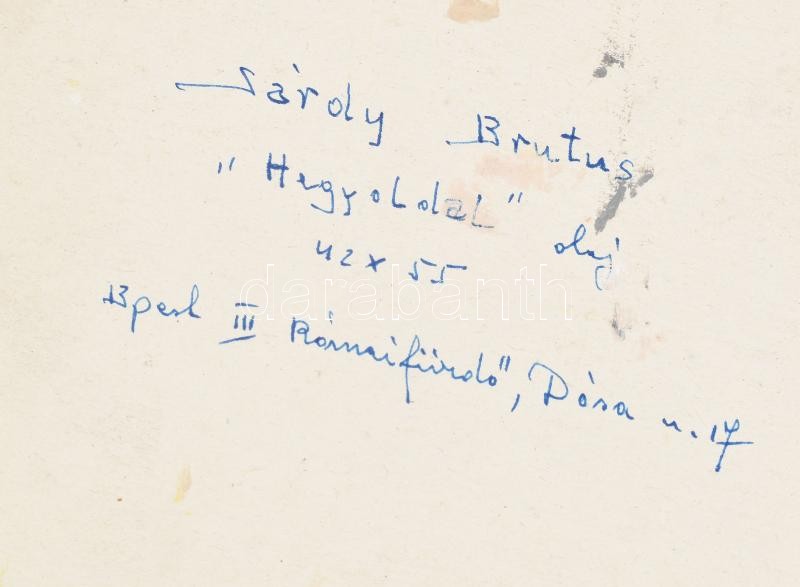 Sárdy Brutus
"Hegyoldal" olaj
42 x 55
Bpest III Rómaifürdő, Dósa u. 17
darabanth